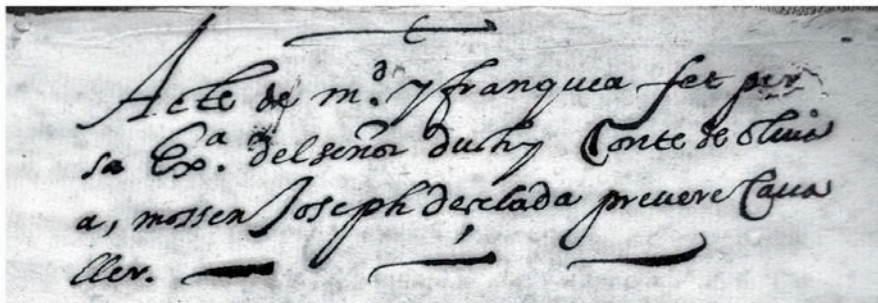 Acte de m.d y franquea fet per
sa Ex.a del señor duch y Conte de oliua
a, mossen Joseph deselada preuere Caua
ller.